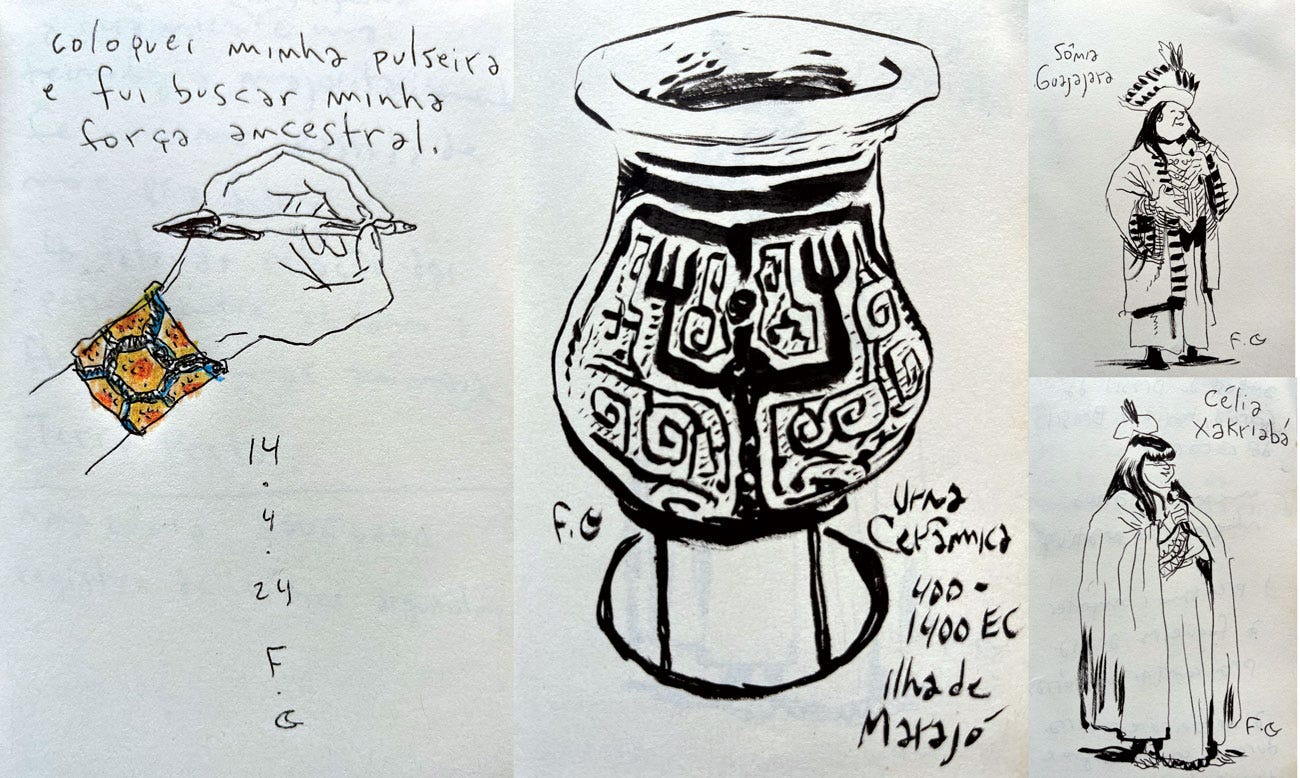 coloquei minha pulseira
e fui buscar minha
força ancestral.
14
.
4
.
24
F
.
G
F.G
Urna
Cerâmica
400-
1400 EC
Ilha de
Marajó
Sônia
Guajajara
F.G
Célia
Xakriabá
F.G